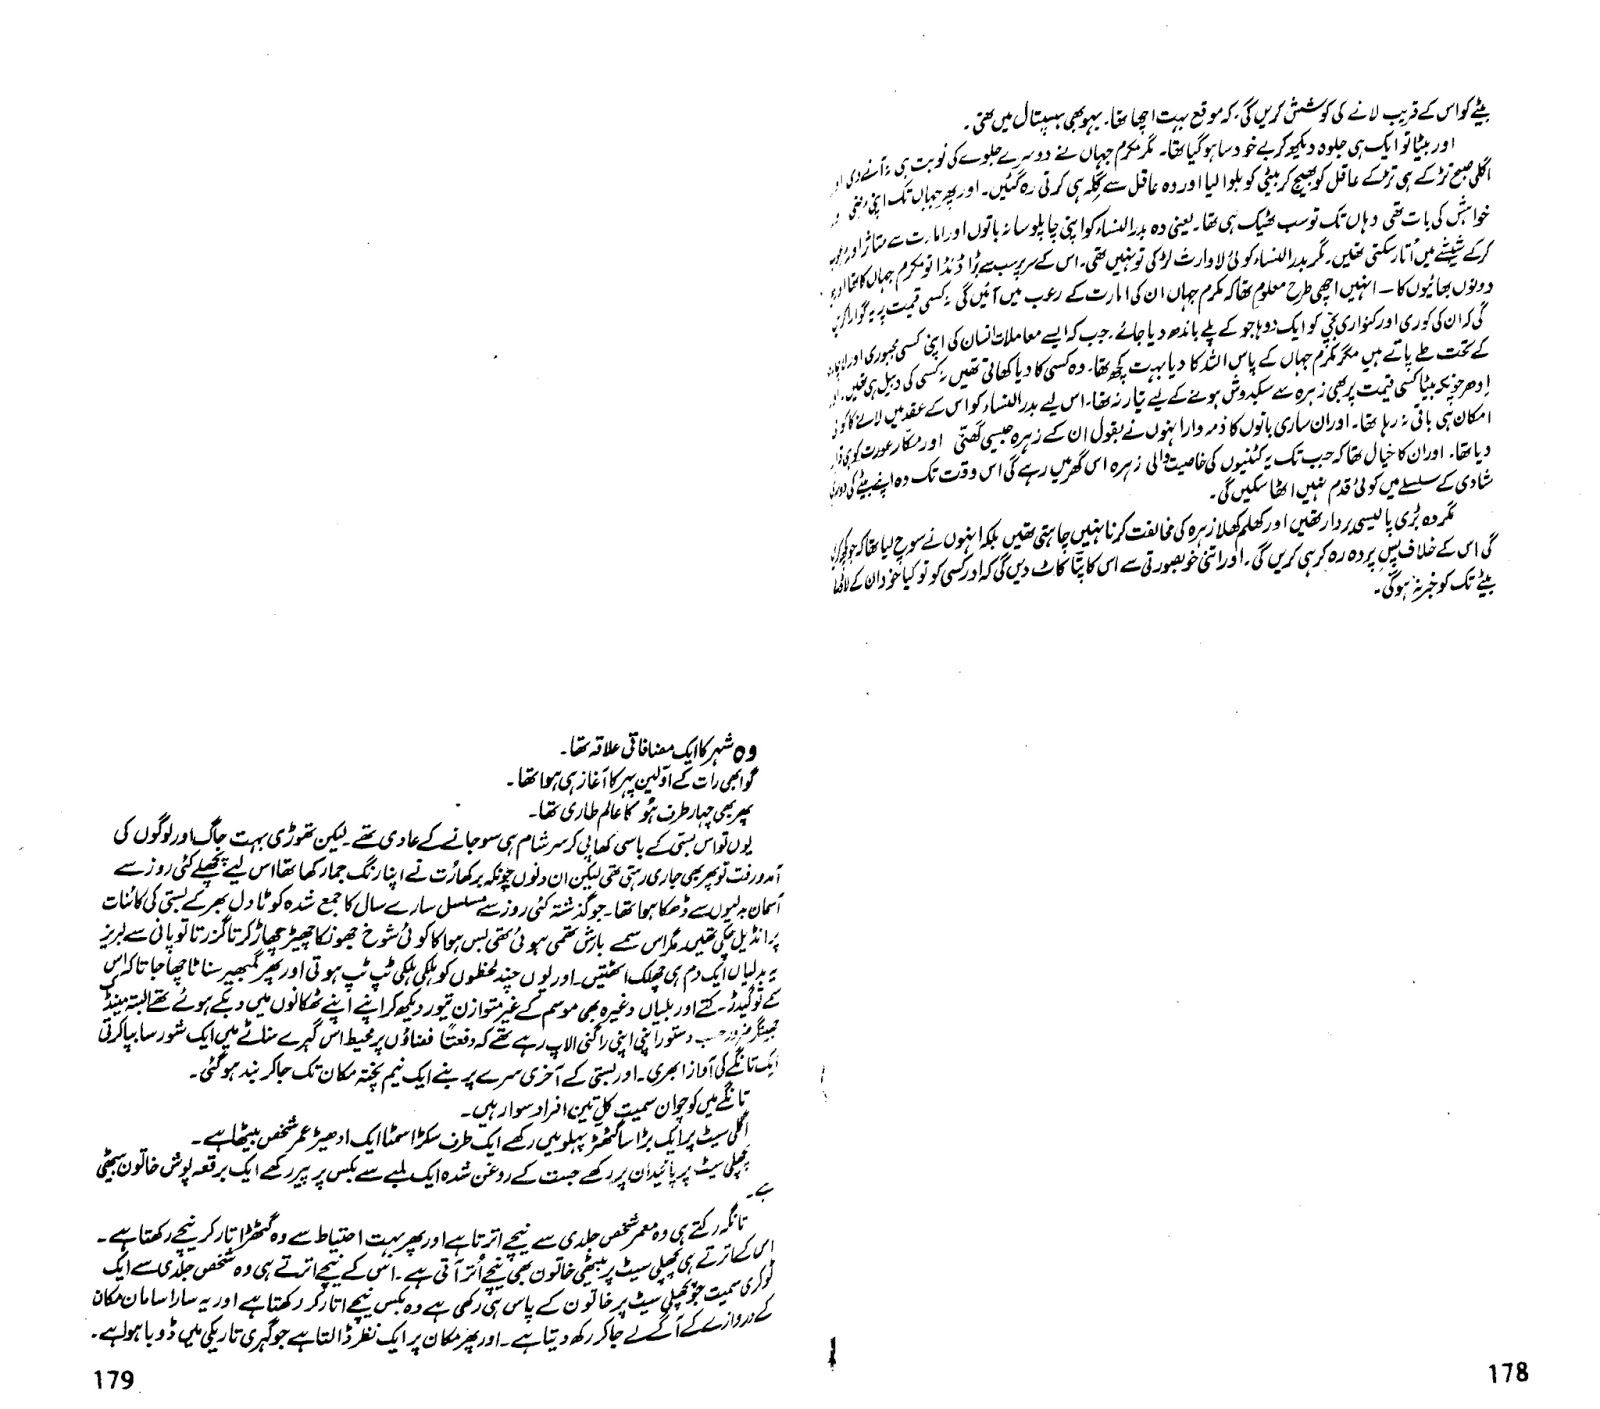 بیٹے کو اس کے قریب لانے کی کوشش کریں گی، کہ موقع بہت اچھا تھا۔ بہو بھی ہسپتال میں تھی۔
اور بیٹا تو ایک ہی جلوہ دیکھ کر بے خود سا ہو گیا تھا۔ مگر مکرم جہاں نے دوسرے جلوے کی نوبت ہی نہ آنے دی
اگلی صبح تڑکے ہی تڑکے عاقل کو بھیج کر بیٹی کو بلوا لیا اور وہ عاقل سے گلہ ہی کرتی رہ گئیں۔ اور پھر جہاں تک اپنی
خواہش کی بات تھی وہاں تک تو سب ٹھیک ہی تھا۔ یعنی وہ بدرالنساء کو اپنی چاپلوسانہ باتوں اور امارت سے متاثر اور
کر کے شیشے میں اُتار سکتی تھیں۔ مگر بدرالنساء کوئی لاوارث لڑکی تو نہیں تھی۔ اس کے سر پر سب سے بڑا ڈنڈا تو مکرم جہاں کا تھا اور
دونوں بھائیوں کا — انہیں اچھی طرح معلوم تھا کہ مکرم جہاں ان کی امارت کے رعب میں آئیں گی نہ کسی قیمت پر یہ گوارا کریں
گی کہ ان کی کوری اور کنواری بچی کو ایک دوہاجو کے پلے باندھ دیا جائے۔ جب کہ ایسے معاملات انسان کی اپنی کسی مجبوری اور
کے تحت طے پاتے ہیں مگر مکرم جہاں کے پاس اللہ کا دیا بہت کچھ تھا۔ وہ کسی کا دیا کھاتی تھیں نہ کسی کی دبیل ہی تھیں۔
اِدھر چونکہ بیٹا کسی قیمت پر بھی زہرہ سے سبکدوش ہونے کے لیے تیار نہ تھا۔ اس لیے بدرالنساء کو اس کے عقد میں لانے کا کوئی
امکان ہی باقی نہ رہا تھا۔ اور ان ساری باتوں کا ذمہ دار انہوں نے بقول ان کے زہرہ جیسی گھنّی اور مکّار عورت کو ہی
دیا تھا۔ اور ان کا خیال تھا کہ جب تک یہ کٹنیوں کی خاصیت والی زہرہ اس گھر میں رہے گی اس وقت تک وہ اپنے بیٹے کی دوسری
شادی کے سلسلے میں کوئی قدم نہیں اٹھا سکیں گی۔
مگر وہ بڑی پالیسی بردار تھیں اور کھلم کھلا زہرہ کی مخالفت کرنا نہیں چاہتی تھیں بلکہ انہوں نے سوچ لیا تھا کہ جو کچھ
گی اس کے خلاف پسِ پردہ رہ کر ہی کریں گی۔ اور اتنی خوبصورتی سے اس کا پتّا کاٹ دیں گی کہ اور کسی کو تو کیا خود ان کے
بیٹے تک کو خبر نہ ہوگی۔
178
وہ شہر کا ایک مضافاتی علاقہ تھا۔
گو ابھی رات کے اوّلین پہر کا آغاز ہی ہوا تھا۔
پھر بھی چہار طرف ہُو کا عالم طاری تھا۔
یوں تو اس بستی کے باسی کھا پی کر سرِ شام ہی سو جانے کے عادی تھے۔ لیکن تھوڑی بہت جاگ اور لوگوں کی
آمد و رفت تو پھر بھی جاری رہتی تھی لیکن ان دنوں چونکہ برکھا رُت نے اپنا رنگ جما رکھا تھا اس لیے پچھلے کئی روز سے
آسمان بدلیوں سے ڈھکا ہوا تھا۔ جو گذشتہ کئی روز سے مسلسل سارے سال کا جمع شدہ کوٹا دل بھر کے بستی کی کائنات
پر انڈیل چکی تھیں۔ مگر اس سمے بارش تھمی ہوئی تھی بس ہوا کا کوئی شوخ جھونکا چھیڑ چھاڑ کرتا گزرتا تو پانی سے لبریز
یہ بدلیاں ایک دم ہی چھلک اٹھتیں۔ اور یوں چند لحظوں کو ہلکی ہلکی ٹپ ٹپ ہوتی اور پھر گمبھیر سناٹا چھا جاتا کہ اس
سمے تو گیدڑ۔ کتے اور بلیاں وغیرہ بھی موسم کے غیر متوازن تیور دیکھ کر اپنے اپنے ٹھکانوں میں دبکے ہوئے تھے البتہ مینڈک
جھینگر ضرور حسبِ دستور اپنی اپنی راگنی الاپ رہے تھے کہ دفعتاً فضاؤں پر محیط اس گہرے سناٹے میں ایک شور سا بپا کرتی
ایک تانگے کی آواز ابھری۔ اور بستی کے آخری سرے پر بنے ایک نیم پختہ مکان تک جا کر بند ہو گئی۔
تانگے میں کوچوان سمیت کل تین افراد سوار ہیں۔
اگلی سیٹ پر ایک بڑا سا گٹھڑ پہلو میں رکھے ایک طرف سکڑا سمٹا ایک ادھیڑ عمر شخص بیٹھا ہے۔
پچھلی سیٹ پر پائیدان پر رکھے جست کے روغن شدہ ایک لمبے سے بکس پر پیر رکھے ایک برقعہ پوش خاتون بیٹھی
ہے۔
تانگہ رکتے ہی وہ معمر شخص جلدی سے نیچے اترتا ہے اور پھر بہت احتیاط سے وہ گٹھڑ اتار کر نیچے رکھتا ہے۔
اس کے اترتے ہی پچھلی سیٹ پر بیٹھی خاتون بھی نیچے اُتر آتی ہے۔ اس کے نیچے اترتے ہی وہ شخص جلدی سے ایک
ٹوکری سمیت جو پچھلی سیٹ پر خاتون کے پاس ہی رکھی ہے وہ بکس نیچے اتار کر رکھتا ہے اور یہ سارا سامان مکان
کے دروازے کے آگے لے جا کر رکھ دیتا ہے۔ اور پھر مکان پر ایک نظر ڈالتا ہے جو گہری تاریکی میں ڈوبا ہوا ہے۔
179